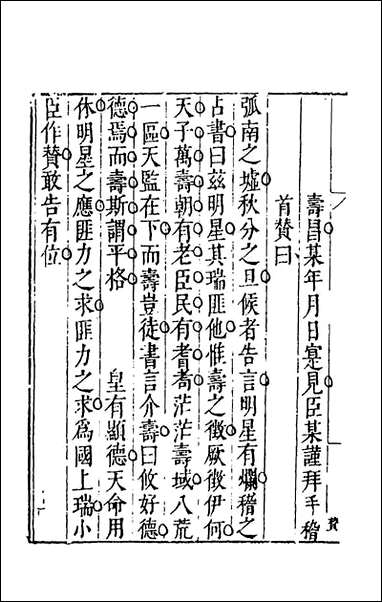 壽昌某年月日寔見臣某謹拜手稽
首贊曰
弧南之墟秋分之旦候者告言明星有爛稽之
占書曰玆明星其瑞匪他惟壽之徵厥徵伊何
天子萬壽朝有老臣民有耆耇茫茫壽域八荒
一區天監在下而壽豈徒書言介壽曰攸好德
德焉而壽斯謂平格 皇有顯德天命用
休明星之應匪力之求匪力之求爲國上瑞小
臣作贊敢告有位